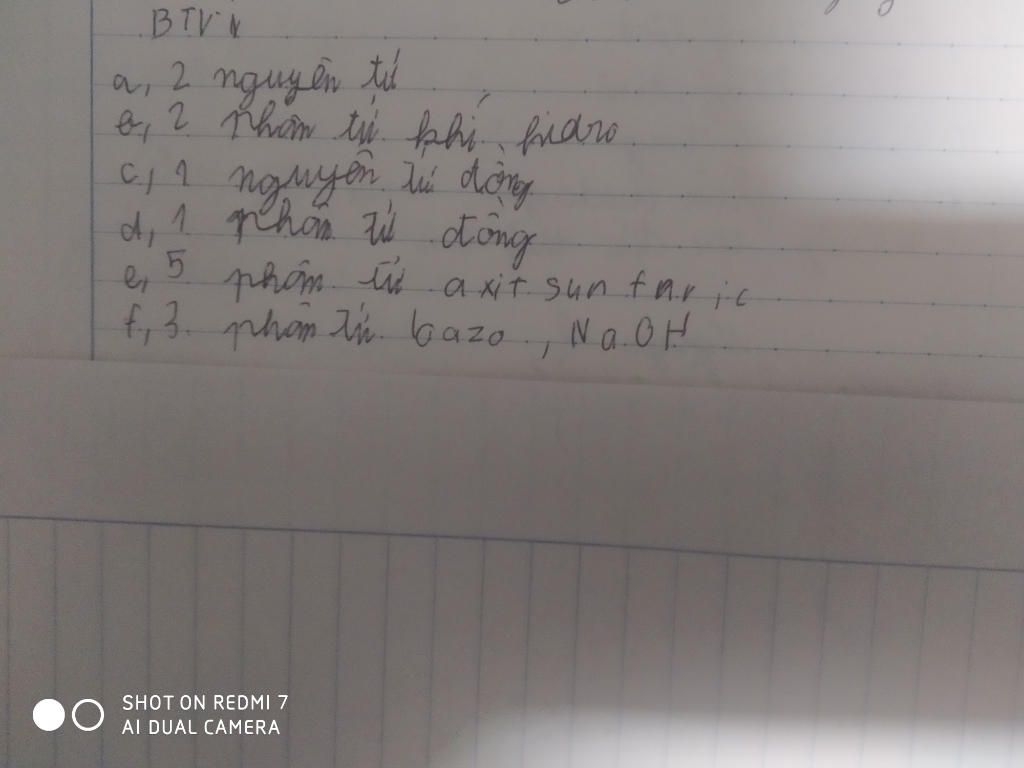 BTVN
a, 2 nguyên tử
b, 2 phân tử khí hidro
c, 1 nguyên tử đồng
d, 1 phân tử đồng
e, 5 phân tử axit sunfuric
f, 3 phân tử bazo, NaOH
SHOT ON REDMI 7
AI DUAL CAMERA